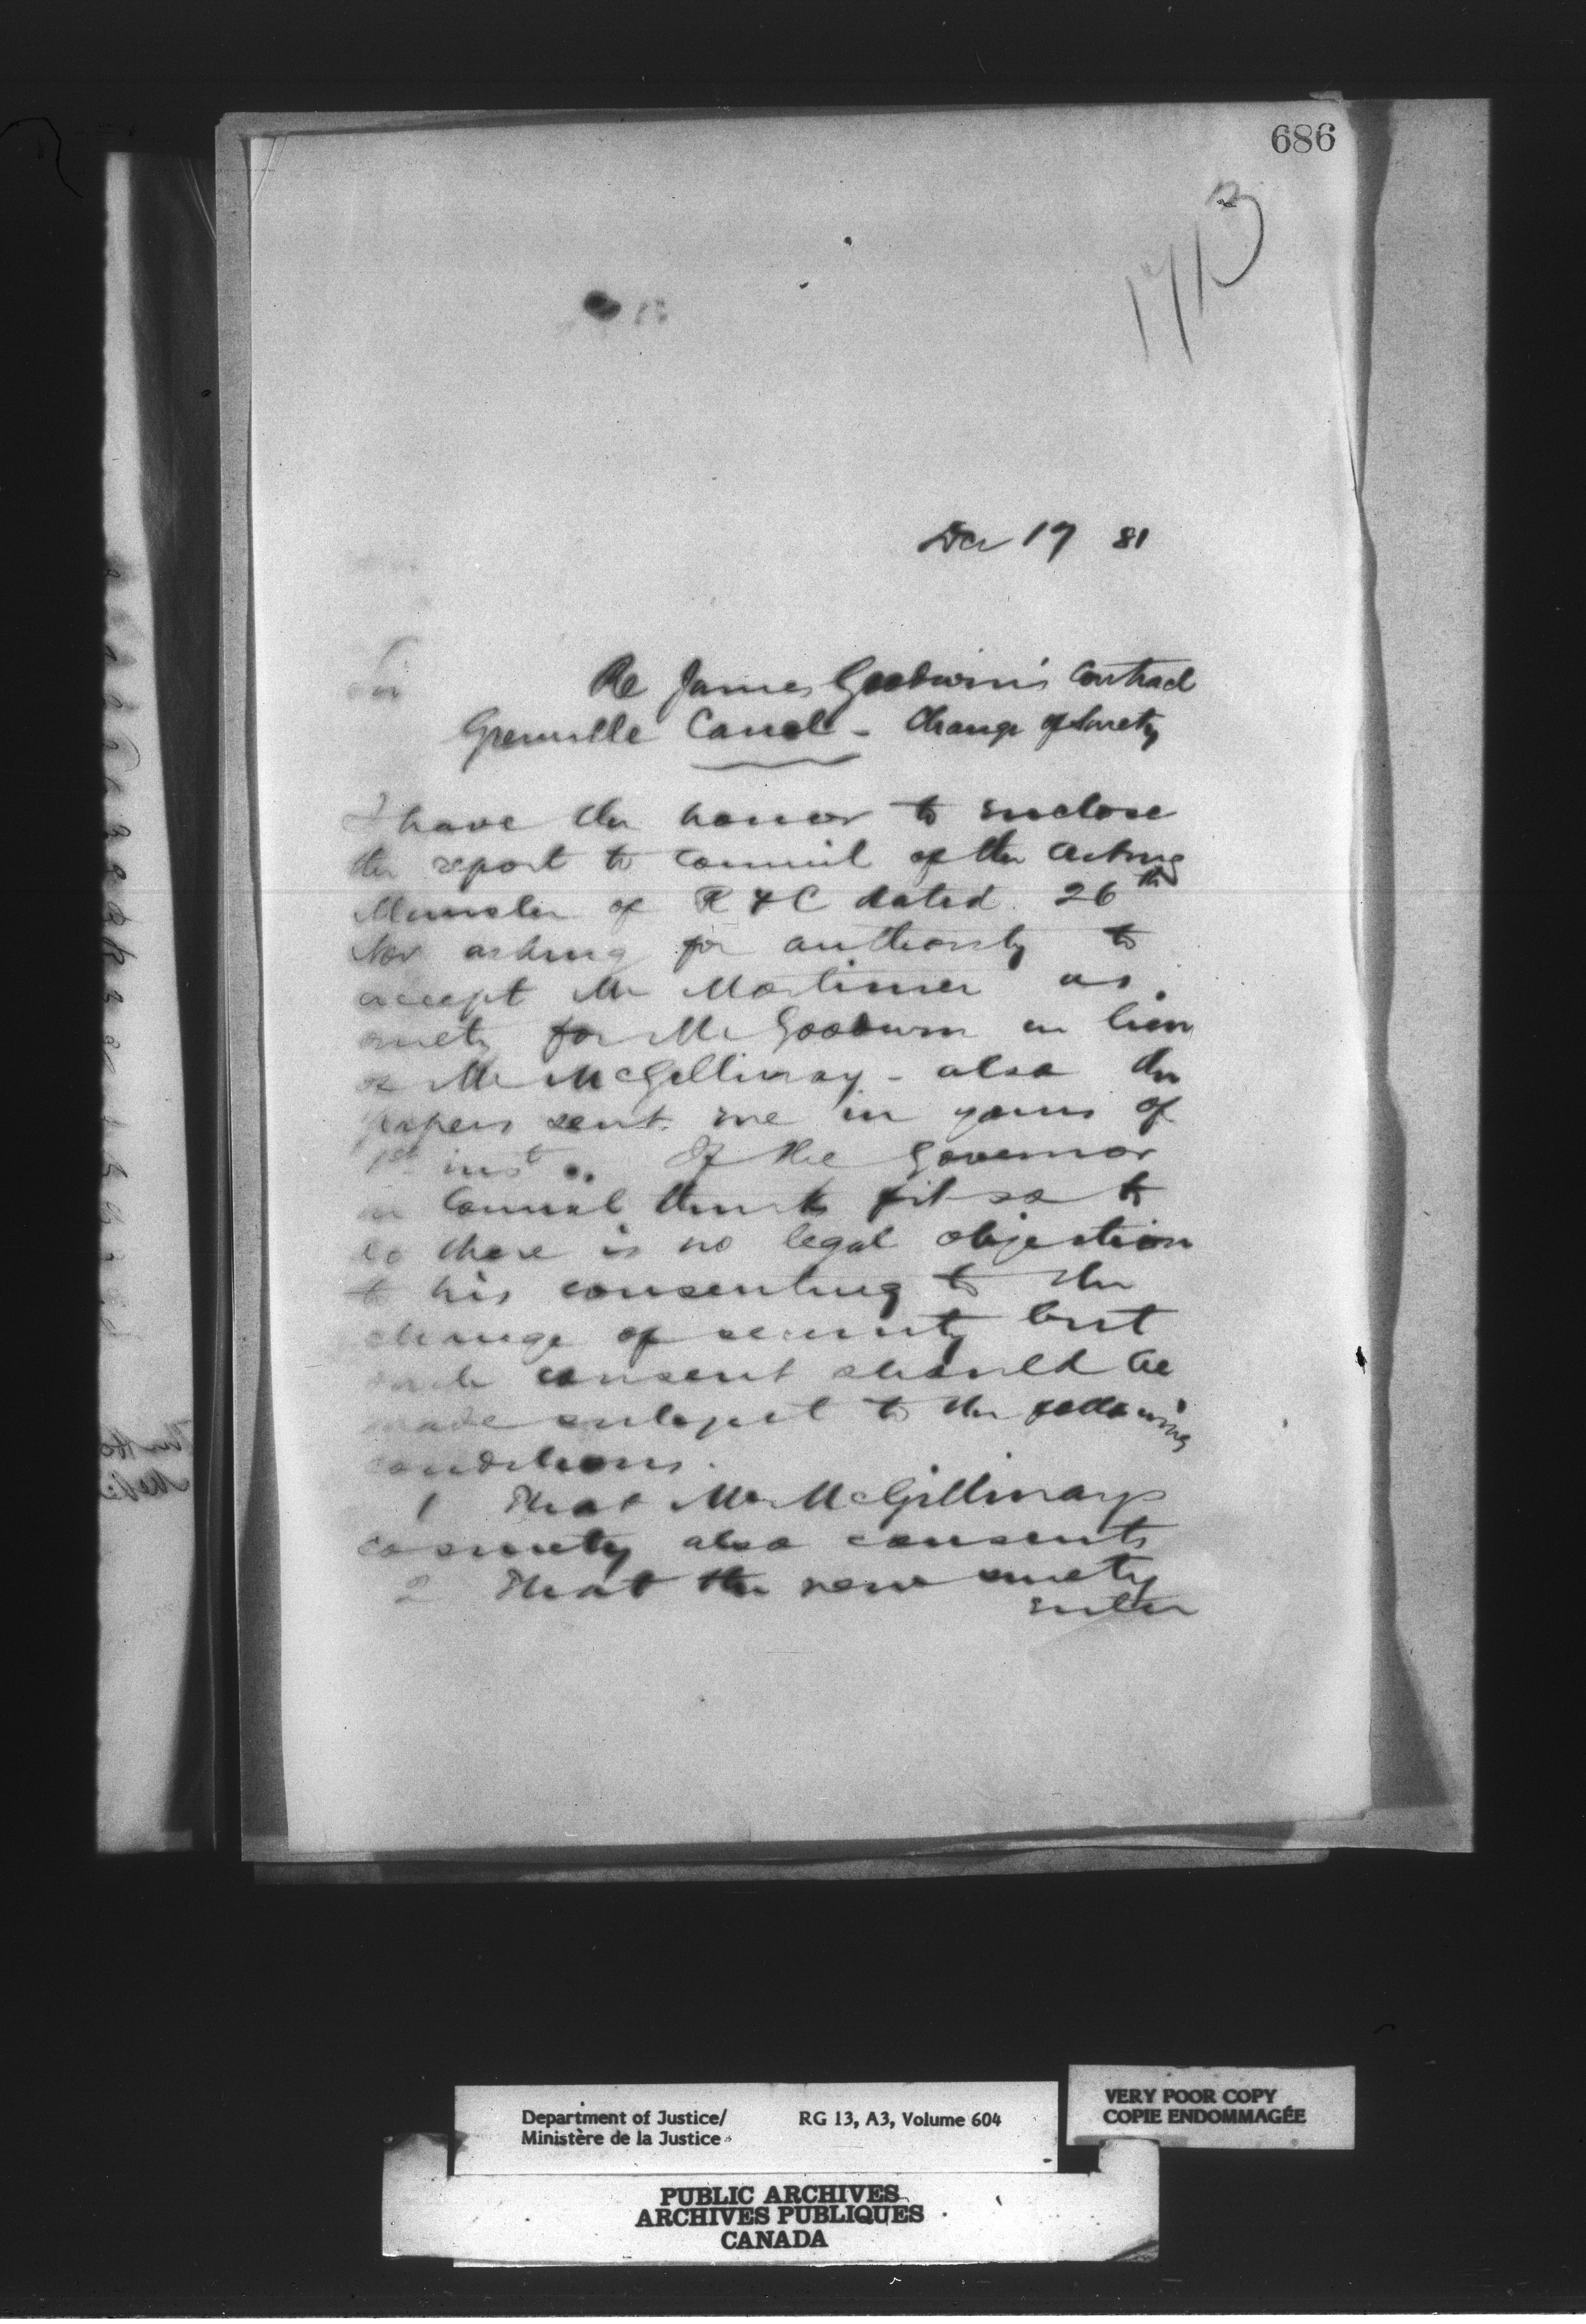 686
1713
Dec 19 81
Sir Re James Goodwin's Contract
Grenville Canal - Change of Surety
I have the honor to enclose
the report to Council of the Acting
Minister of R & C dated 26th
Nov asking for authority to
accept Mr Mortimer as
surety for Mr Goodwin in lieu
of Mr McGillivray - also the
papers sent me in yours of
1st inst. If the Governor
in Council thinks fit so to
do there is no legal objection
to his consenting to the
change of security but
such consent should be
made subject to the following
conditions.
1 That Mr McGillivray's
co surety also consents
2 That the new surety
enter
Department of Justice/
Ministère de la Justice
RG 13, A3, Volume 604
VERY POOR COPY
COPIE ENDOMMAGÉE
PUBLIC ARCHIVES
ARCHIVES PUBLIQUES
CANADA